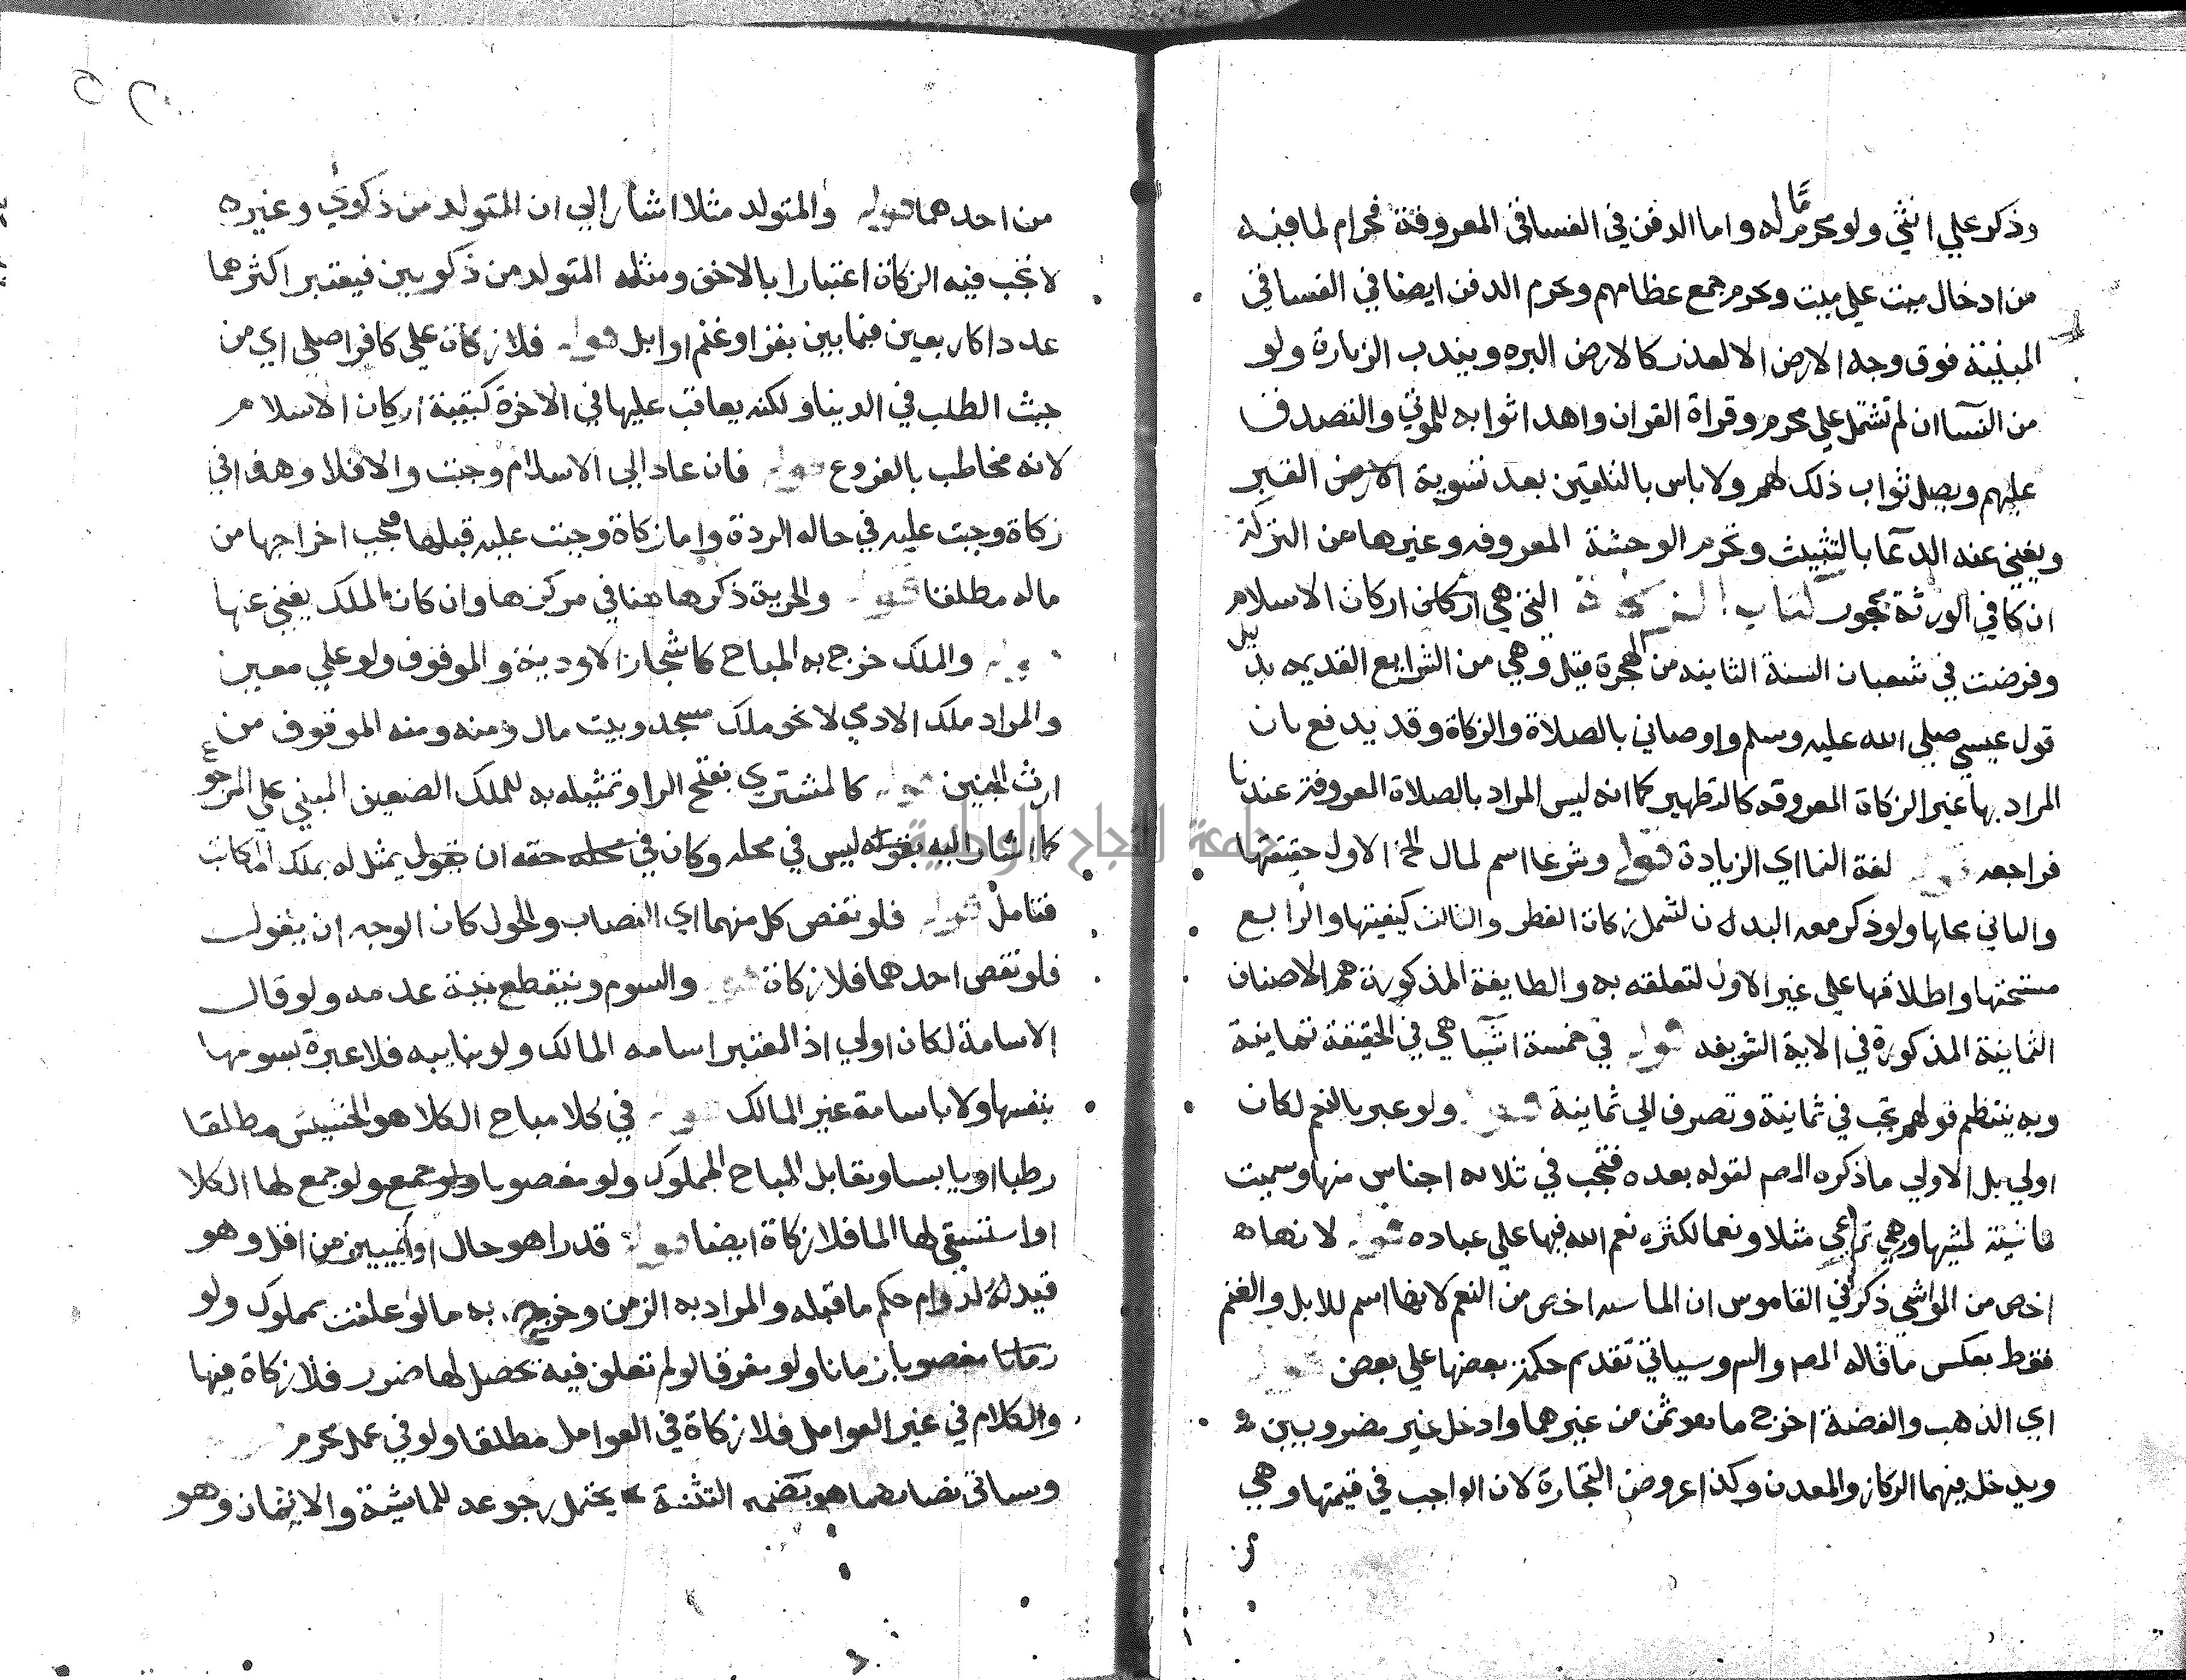 وذكر علي انثي ولو محرما له واما الدفن في الفساقي المعروفة فحرام لما فيه
من ادخال ميت علي ميت ويحرم جمع عظامهم ويحرم الدفن ايضا في الفساقي
المبنية فوق وجه الارض الا لعذر كالارض البره ويندب الزيارة ولو
من النسآ ان لم تشتمل علي محرم وقراة القران واهدا ثوابه للموتي والتصدق
عليهم ويصل ثواب ذلك لهم ولا باس بالتلقين بعد تسوية الارض القبر
ويغني عنه الدعآ بالتثبيت وتحرم الوحشة المعروفه وغيرها من التركة
ان كا في الورثة محجور كتاب الزكاة التي هي اركان اركان الاسلام
وفرضت في شعبان السنة الثانيه من الهجرة قيل وهي من الشرايع القديمه بدليل
قول عيسي صلي الله عليه وسلم واوصاني بالصلاة والزكاة وقد يدفع بان
المراد بها غير الزكاة المعروفه كالتطهير كما انه ليس المراد بالصلاة المعروفة عندنا
فراجعه قوله لغة النما اي الزيادة قوله وشرعا اسم لمال الخ الاول حقيقتها
والثاني محلها ولو ذكر معه البدن لشمل زكاة الفطر والثالث كيفيتها والرابع
مستحقها واطلاقها علي غير الاول لتعلقه به والطايفة المذكورة هم الاصناف
الثمانية المذكورة في الاية الشريفه قوله في خمسة اشيآ هي في الحقيقة ثمانية
وبه ينتظم قولهم تجب في ثمانية وتصرف الي ثمانية قوله ولو عبر بالنعم لكان
اولي بل الاولي ما ذكره المص لقوله بعده فتجب في ثلاثه اجناس منها وسميت
ماشية لمشيها وهي تراعي مثلا ونعما لكثره نعم الله فيها علي عباده قوله لانها
اخص من المواشي ذكر في القاموس ان الماشيه اخص من النعم لانها اسم للابل والغنم
فقط بعكس ما قاله المص والس وسياتي تقديم حكمة بعضها علي بعض قوله
اي الذهب والفضة اخرج ما يعد ثمن من غيرهما وادخل غير مضروبين
ويدخل فيهما الركاز والمعدن وكذا عروض التجارة لان الواجب في قيمتها وهي
من احدهما قوله والمتولد مثلا اشار الي ان المتولد من ذكوي وغيره
لا تجب فيه الزكاة اعتبارا بالاخف ومثله المتولد من ذكويين فيعتبر اكثرهما
عددا كاربعين فيما بين بقر او غنم او ابل قوله فلا زكاة علي كافر اصلي اي من
حيث الطلب في الدينا ولكنه يعاقب عليها في الاخرة كبقية اركان الاسلام
لانه مخاطب بالفروع قوله فان عاد الي الاسلام وجبت والا فلا وهذا في
زكاة وجبت عليه في حاله الردة واما زكاة وجبت عليه قبلها فيجب اخراجها من
ماله مطلقا قوله والحرية ذكرها هنا في مركزها وان كان الملك يغني عنها
قوله والملك خرج به المباح كاشجار الاودية والموقوف ولو علي معين
والمراد ملك الادمي لا نحو ملك مسجد وبيت مال ومنه ومنه الموقوف من
ارث الجنين قوله كالمشتري بفتح الرا وتمثيله به للملك الضعيف المبني علي المرجوع
كما اشار اليه بقوله ليس في محله وكان في محله حقه ان يقول يمثل له بملك المكاتب
فتامل قوله فلو نقص كل منهما اي النصاب والحول كان الوجه ان يقول
فلو نقص احدهما فلا زكاة قوله والسوم وينقطع بنية عدمه ولو قال
الاسامة لكان اولي اذ المعتبر اسامه المالك ولو بنايبه فلا عبرة بسومها
بنفسها ولا باسامة غير المالك قوله في كلا مباح الكلا هو الحشيش مطلقا
رطبا او يابسا ويقابل المباح المملوك ولو مغصوبا ولو جمع ولو جمع لها الكلا
او استسقي لها الما فلا زكاة ايضا قوله قدرا هو حال او تمييز من اقل وهو
قيد له لدوام حكم ما قبله والمراد به الزمن وخرج به ما لو علفت بمملوك ولو
زمانا مغصوبا زمانا ولو مفرقا لو لم تعلف فيه تحصل لها ضرر فلا زكاة فيها
والكلام في غير العوامل فلا زكاة في العوامل مطلقا ولو في عمل محرم
وسياتي نصابهما هو بضمير التثنية يحتمل رجوعه للماشية والاثمان وهو